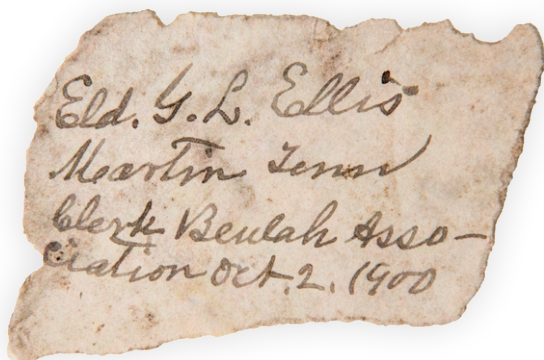 Eld. G. L. Ellis
Martin Tenn
Clerk Beulah Asso-
ciation Oct. 2. 1900